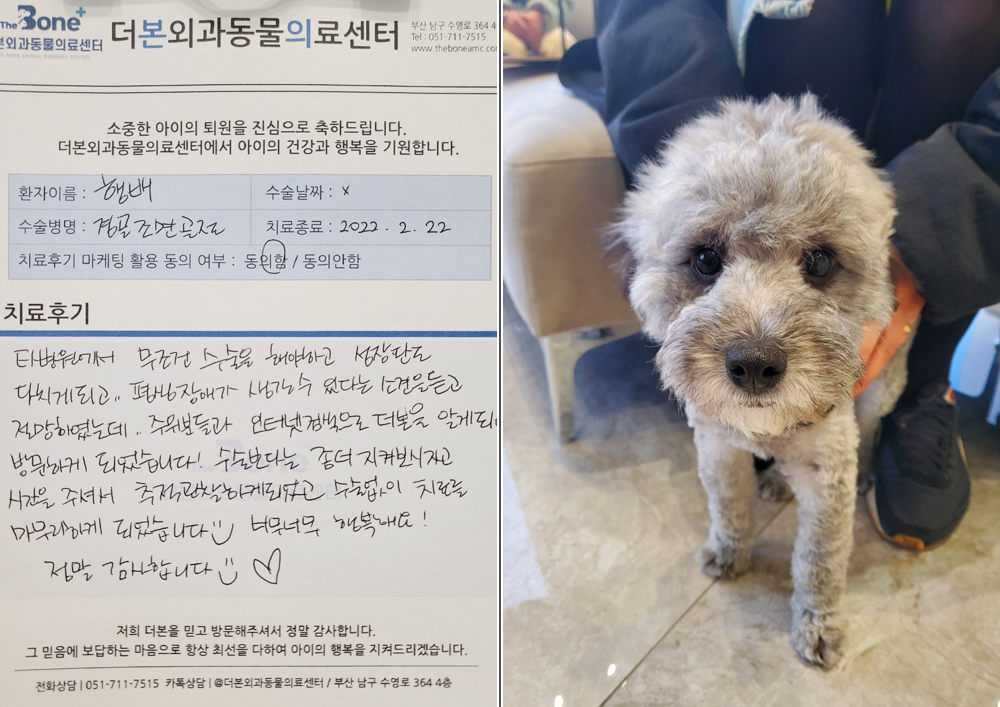 The Bone+
더본외과동물의료센터
부산 남구 수영로 364 4
본외과동물의료센터
Tel : 051-711-7515
THE BONE ANIMAL SURGERY CENTER
www.theboneamc.com
소중한 아이의 퇴원을 진심으로 축하드립니다.
더본외과동물의료센터에서 아이의 건강과 행복을 기원합니다.
환자이름 : 행배
수술날짜 : x
수술병명 : 경골조면골절
치료종료 : 2022. 2. 22
치료후기 마케팅 활용 동의 여부 : 동의함 / 동의안함
치료후기
타병원에서 무조건 수술을 해야하고 성장판도
다치게되고.. 평생장애가 생길수 있다는 소견을듣고
절망하였는데.. 주위분들과 인터넷검색으로 더본을 알게되
방문하게 되었습니다! 수술보다는 좀더 지켜보시자고
시간을 주셔서 추적관찰하게되었고 수술없이 치료를
마무리하게 되었습니다 너무너무 행복해요!
정말 감사합니다 ♡
저희 더본을 믿고 방문해주셔서 정말 감사합니다.
그 믿음에 보답하는 마음으로 항상 최선을 다하여 아이의 행복을 지켜드리겠습니다.
전화상담 | 051-711-7515 카톡상담 | @더본외과동물의료센터 / 부산 남구 수영로 364 4층